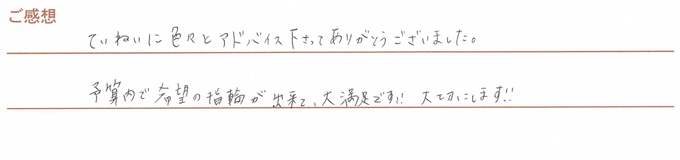 ご感想
ていねいに色々とアドバイス下さってありがとうございました。
予算内で希望の指輪が出来て、大満足です!! 大切にします!!